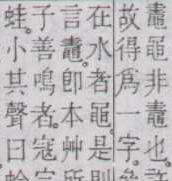 鼃黽非鼃也。
故得爲一字。
在水者黽是
言鼃。卽本艸
子善鳴者。寇
蛙。小其聲曰